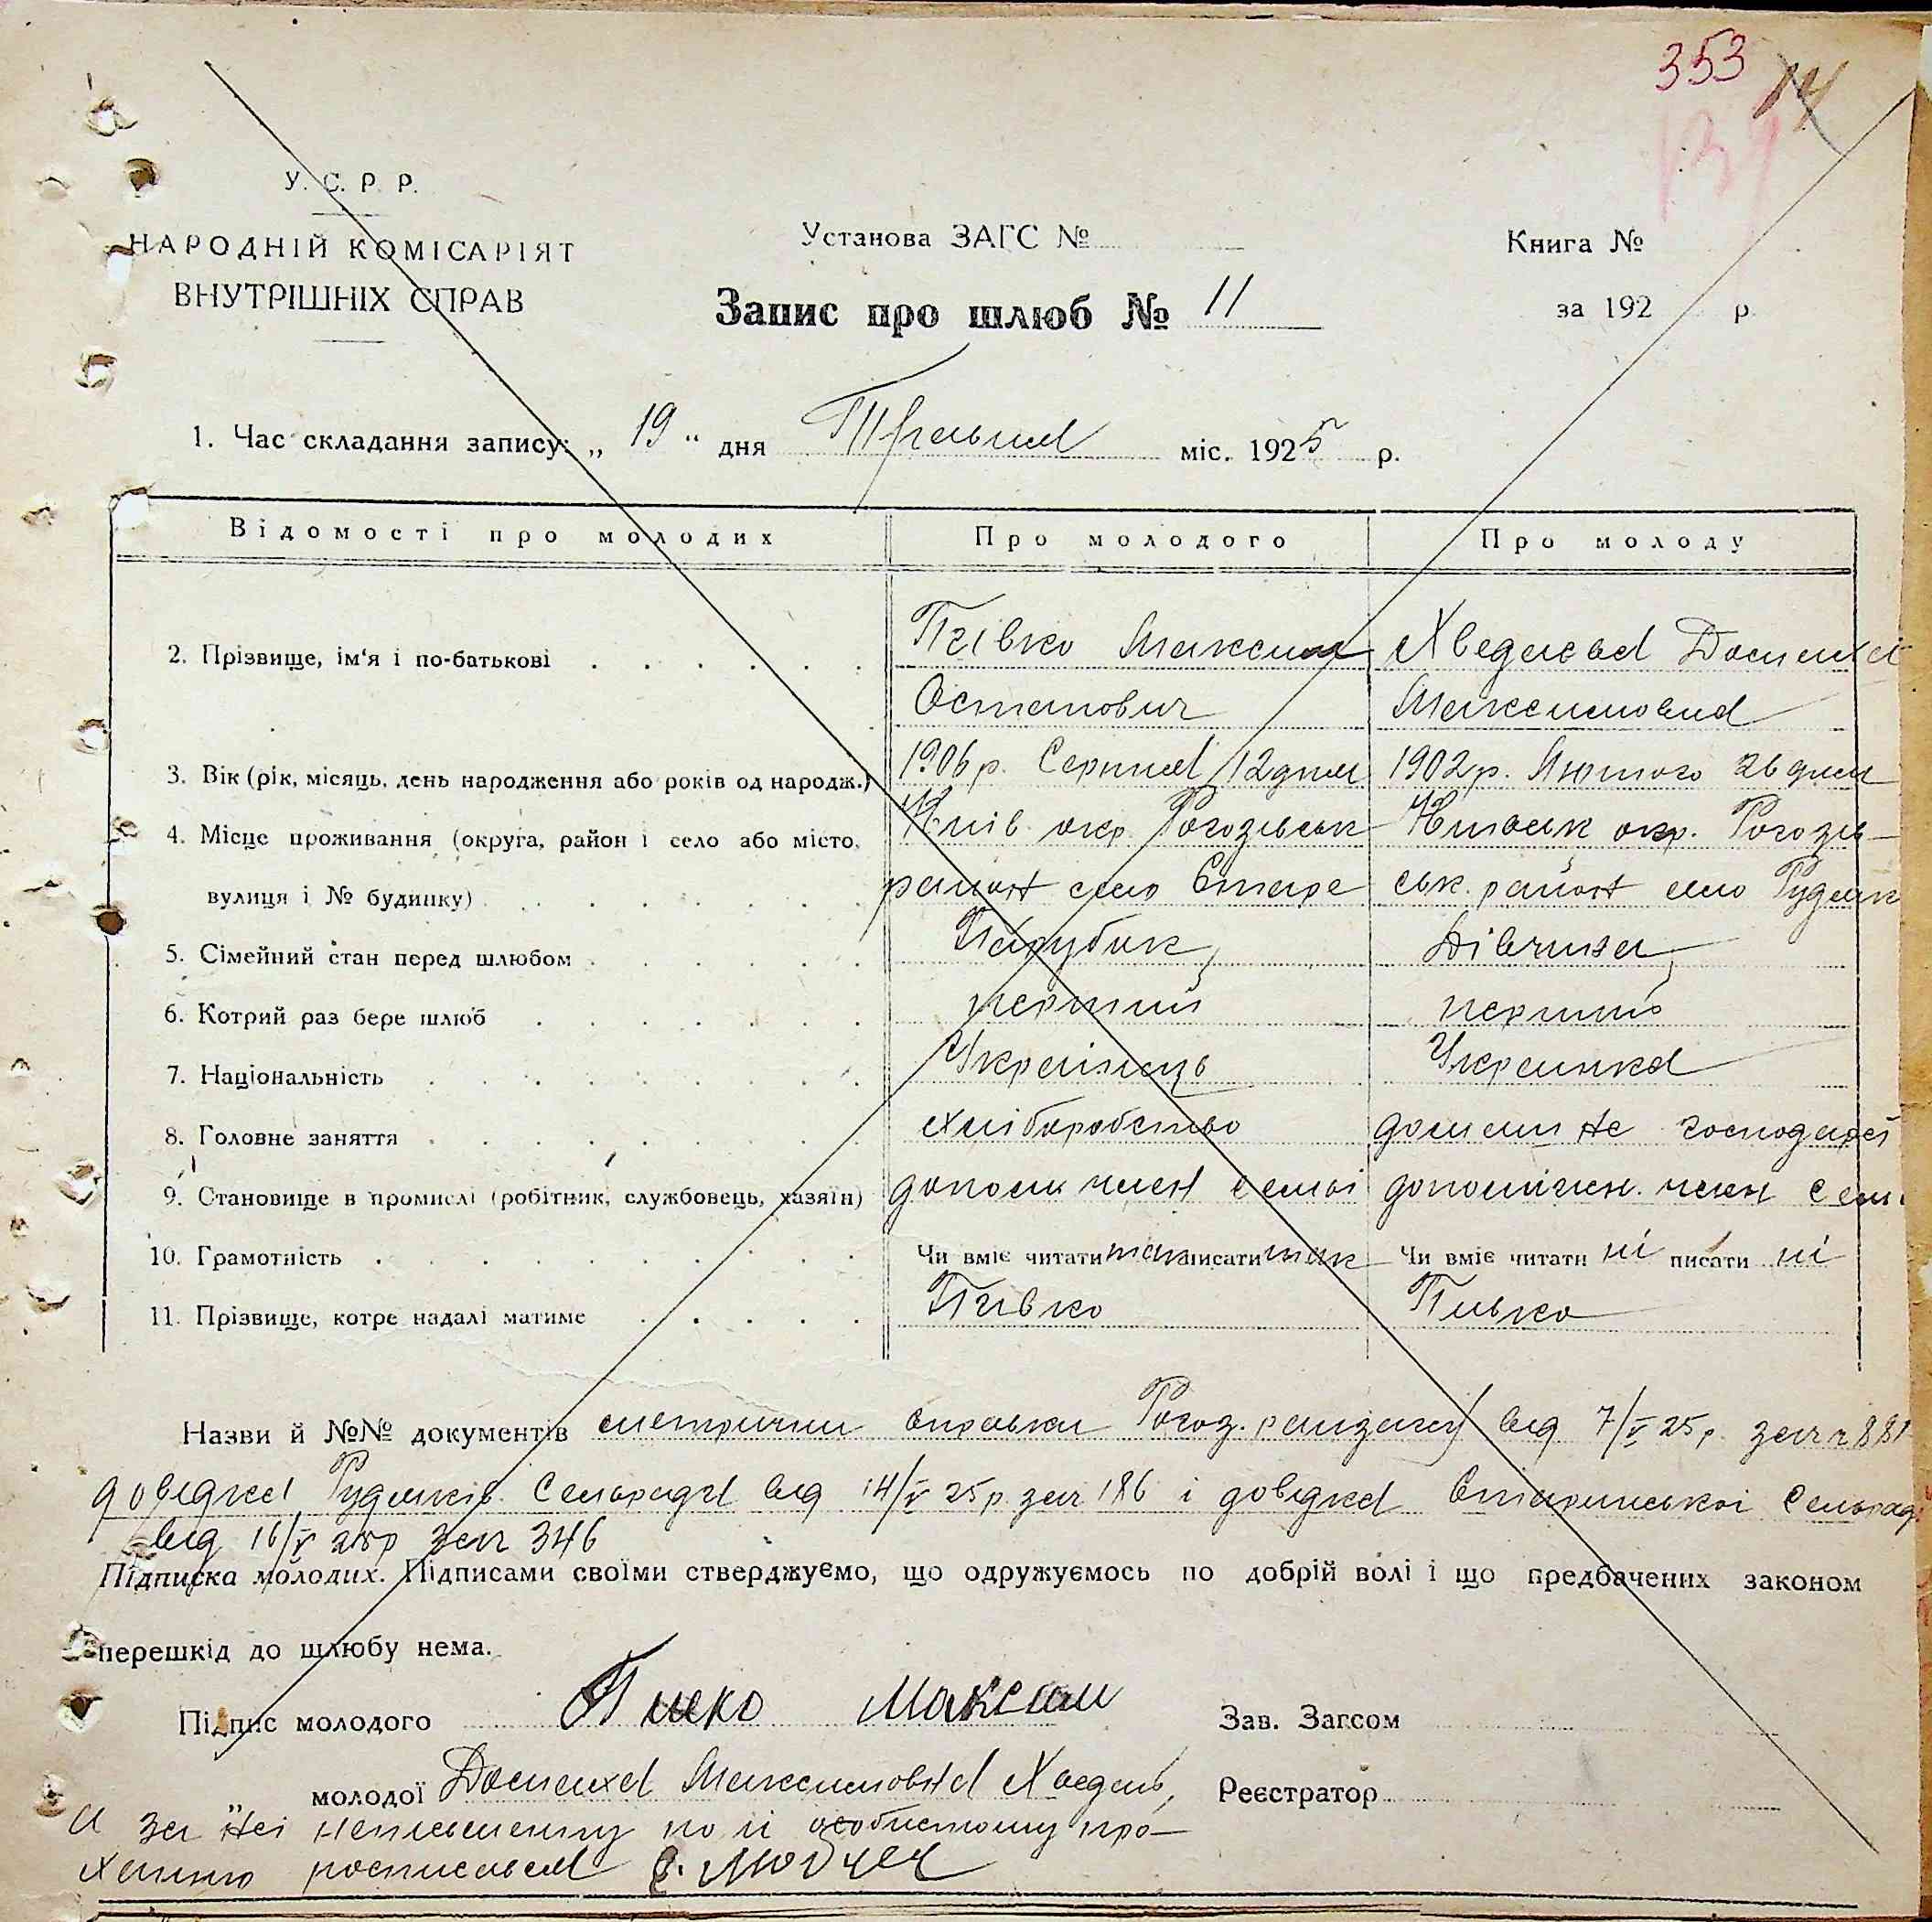 353 14
У. С. Р. Р.
НАРОДНІЙ КОМІСАРІЯТ
ВНУТРІШНІХ СПРАВ
Установа ЗАГС №
Книга №
Запис про шлюб № 11
за 192 р.
1. Час складання запису: „ 19 “ дня Травня міс. 1925 р.
Відомості про молодих Про молодого Про молоду
2. Прізвище, ім‘я і по-батькові Пивко Максим Хведьсва
Остапович Максимовна
3. Вік (рік, місяць, день народження або років од народж.) 1906 р. Серпня 12 дня 1902 р. Лютого 26 дня
4. Місце проживання (округа, район і село або місто, Київ. окр. Рогозівськ Київськ окр. Рогозів-
вулиця і № будинку) район село Старе ськ. район село Рудяк
5. Сімейний стан перед шлюбом Парубик Дівчина
6. Котрий раз бере шлюб перший перший
7. Національність Украінець Украинка
8. Головне заняття хліборобство домашнє господарсї
9. Становище в промислі (робітник, службовець, хазяїн) допом член семьі допоміжн. член сем
10. Грамотність Чи вміє читати так писати так Чи вміє читати ні писати ні
11. Прізвище, котре надалі матиме Пивко Пивко
Назви й №№ документів метричні справки Рогоз. райзагсу від 7/V 25 р. за № 881
довідка Рудяків. Сельради від 14/V 25 р. за № 186 і довідка Старинської Сельрад
від 16/V 25 р за № 346
Підписка молодих. Підписами своїми стверджуємо, що одружуємось по добрій волі і що предбачених законом
перешкід до шлюбу нема.
Підпис молодого Пивко Максим Зав. Загсом
молодої Домаха Максимовна Хведь, Реєстратор
А за неі неписьменну по іі особистому про-
ханню росписався